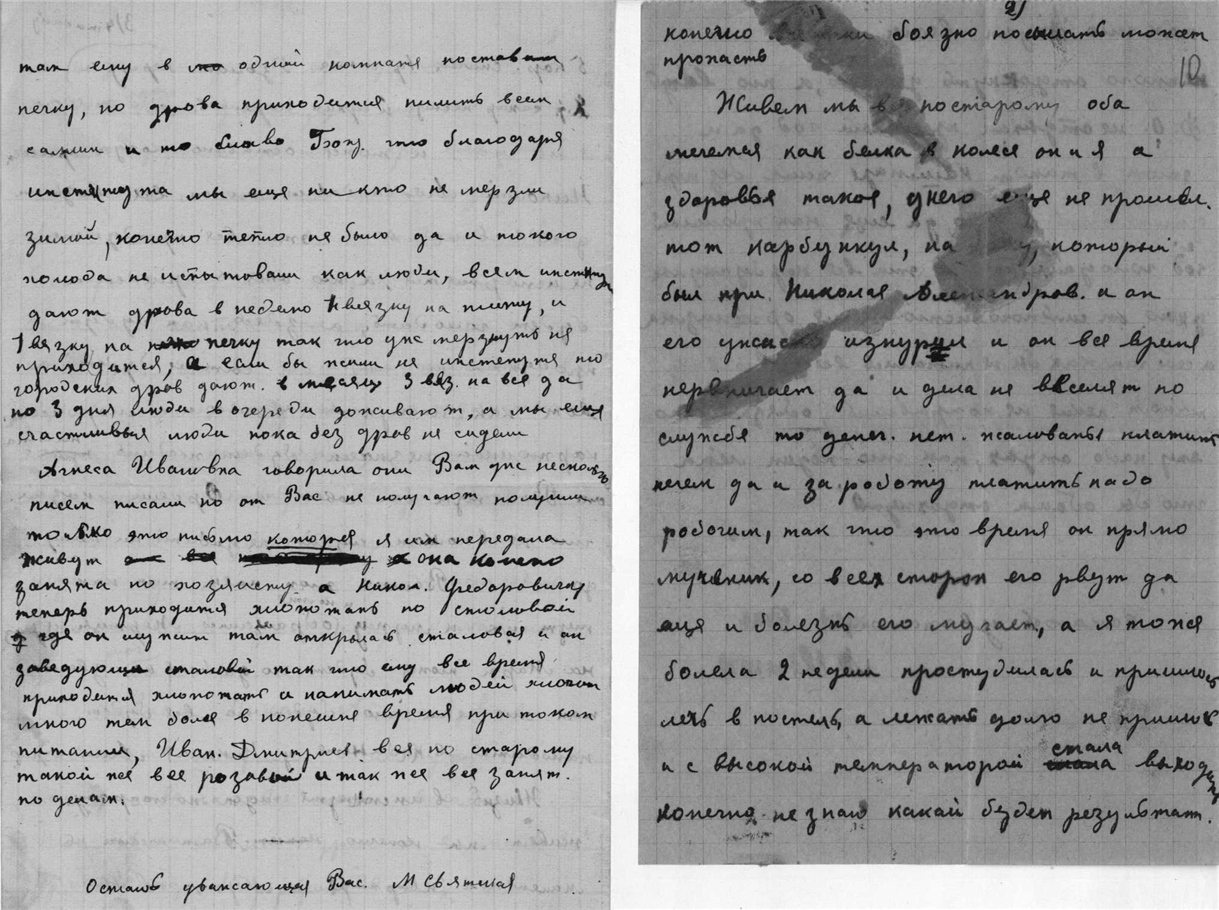 так ему в одной комнате поставили
печку, но дрова приходится пилить всем
самим и то славо Богу что благодаря
института мы еще ни кто не мерзли
зимой, конечно тепло не было да и такого
холода не испытовали как люди, всем институ
дают дрова в неделю 1 вязку на плиту, и
1 вязку на печку так что уже мерзнуть не
приходится, а если бы жили не институте то
городских дров дают. в месяц 3 вяз. на все да
по 3 дня люди в очереди доживают, а мы еще
счастливыя люди пока без дров не сидели
Агнеса Ивановна говорила они Вам уже несколько
писем писали но от Вас не получают получили
только это письмо которое я им передала
живут она конечно
занята по хозяйсту а Никол. Федаровичу
теперь приходится хлопотать по столовой
где он служит там открылась сталовая и он
заведующий сталовой так что ему все время
приходится хлопотать и нанимать людей хлопот
много тем более в нонешне время при таком
питании, Иван. Дмитриев все по старому
такой же все розавый и так же все занят.
по делам.
Остаюсь уважающая Вас. М Святская
2)
конечно боязно посылать может
пропасть
10
Живем мы в постарому оба
мечемся как белка в колесе он и я а
здоровья такое, у него еще не прошел.
тот карбункул, на который
был при Николая Александров. и он
его ужасно изнурил и он все время
нервничает да и дела не веселят по
службе то денег. нет. жалованья платить
нечем да и за роботу платить надо
робочим, так что это время он прямо
мученик, со всех сторон его рвут да
еще и болезнь его мучает, а я тоже
болела 2 недели простудилась и пришлось
лечь в постель, а лежать долго не пришлос
и с высокой температорой стала выходить
конечно не знаю какой будет результат.